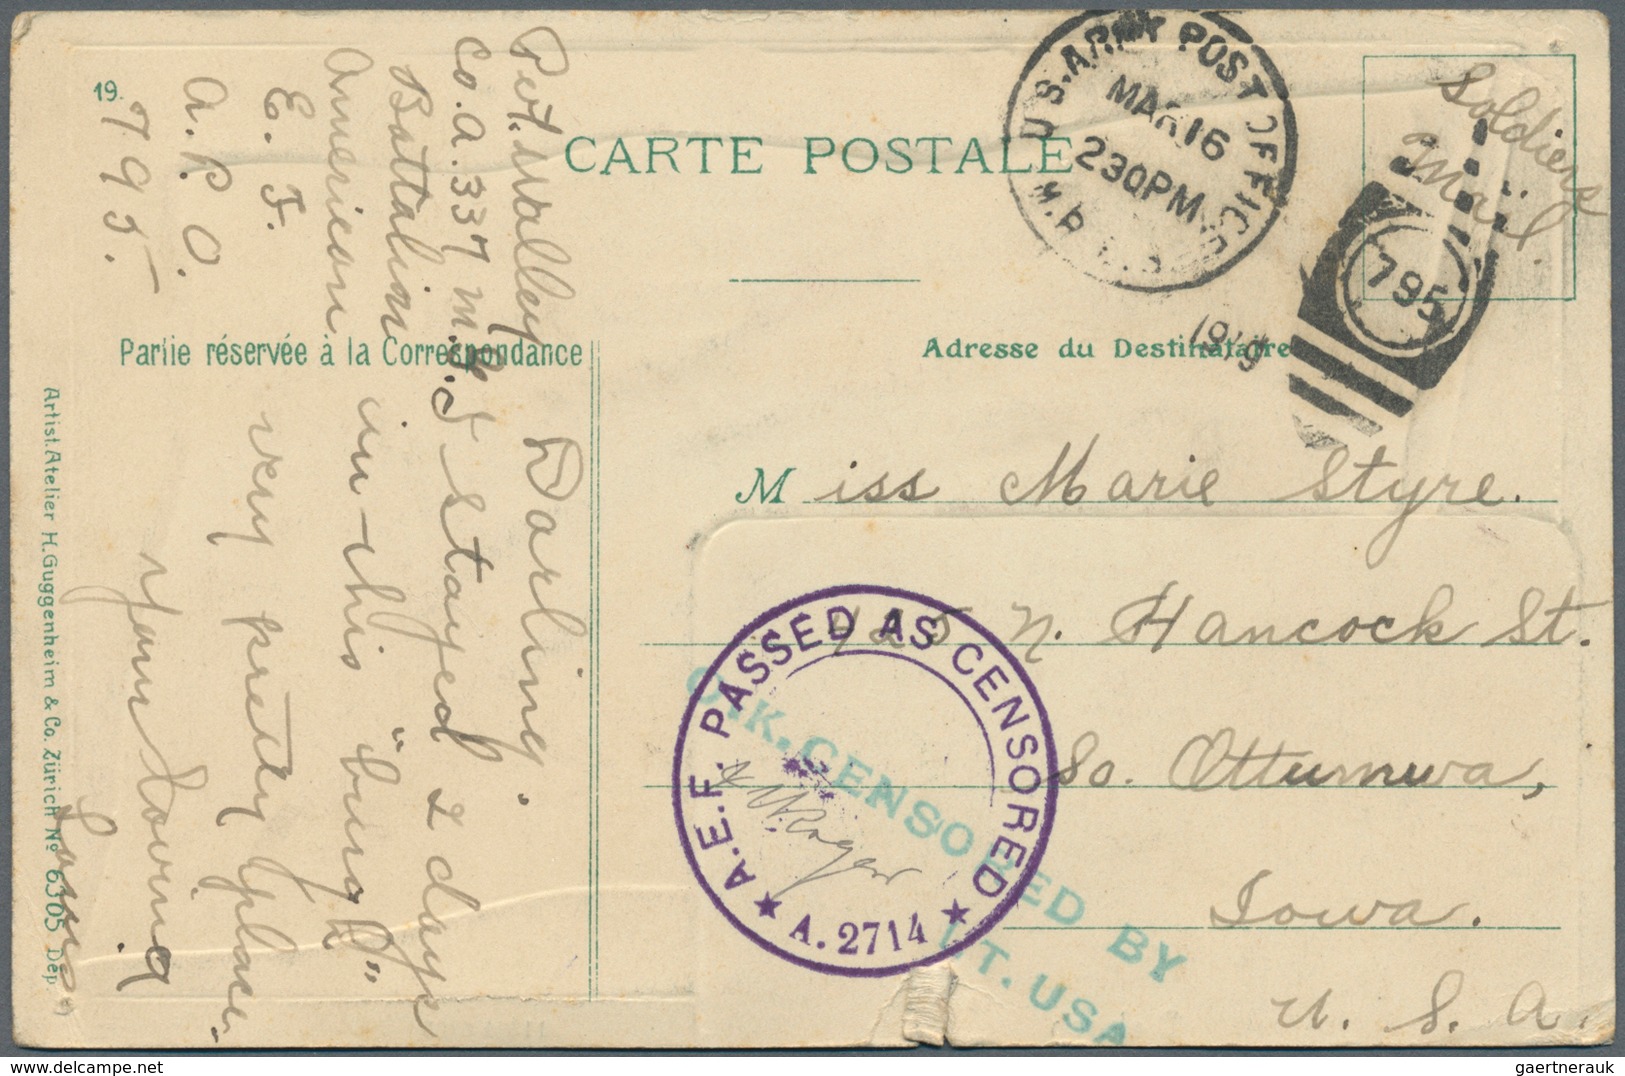 19.
CARTE POSTALE
U.S. ARMY POST OFFICE
MAR 16
230PM
1919
795
Soldiers
Mail.
Partie réservée à la Correspondance
Adresse du Destinataire
Pvt. Walley
Co. A. 337 M.G.
Battalion
American
E. F.
A. P. O.
795.
Darling
I stayed 2 days
in this "burg"
very pretty place.
Your Loving
Miss Marie Styre.
425 N. Hancock St.
So. Ottumwa,
Iowa.
U. S. A.
A.E.F. PASSED AS CENSORED
A. 2714
O.K. CENSORED BY
LT. USA
Artist. Atelier H. Guggenheim & Co. Zürich No 6305 Dep.
gaertnerauk